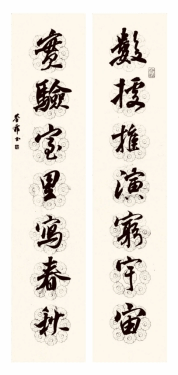 數據推演窮宇宙
實驗室里寫春秋